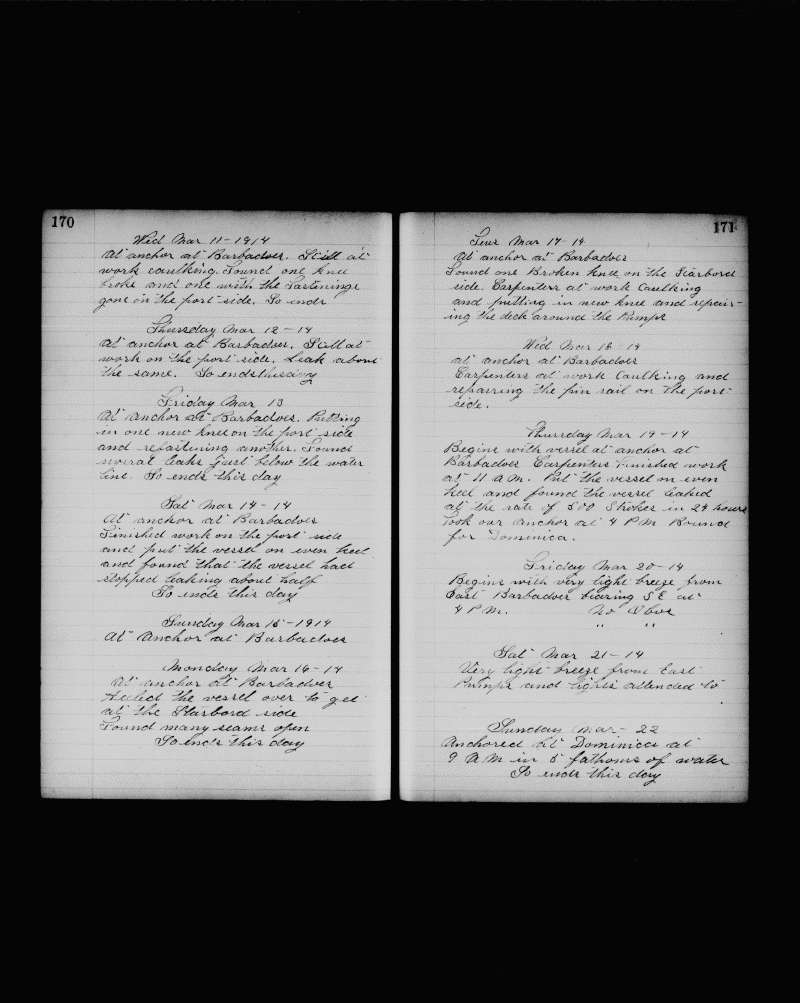 170
Wed Mar 11-1914
At anchor at Barbadoes. Still at
work caulking. Found one knee
broke and one with the fastenings
gone on the port side. So ends
Thursday Mar 12-14
At anchor at Barbadoes. Still at
work on the port side. Leak about
the same. So ends the day
Friday Mar 13
At anchor at Barbadoes. Putting
in one new knee on the port side
and refastening another. Found
several leaks just below the water
line. So ends this day
Sat Mar 14-14
At anchor at Barbadoes
Finished work on the port side
and put the vessel on even keel
and found that the vessel had
stopped leaking about half
So ends this day
Sunday Mar 15-1914
At Anchor at Barbadoes
Monday Mar 16-14
At anchor at Barbadoes
the vessel over to get
at the Starbord side
Found many seams open
So ends this day
171
Tues Mar 17-14
At anchor at Barbadoes
Found one Broken knee on the Starbord
side. Carpenters at work Caulking
and putting in new knee and repair-
ing the deck around the Pumps
Wed Mar 18-14
at anchor at Barbadoes
Carpenters at work Caulking and
reparring the pin rail on the port
side.
Thursday Mar 19-14
Begins with vessel at anchor at
Barbadoes Carpenters Finished work
at 11 a m. Put the vessel on even
keel and found the vessel leaked
at the rate of 500 Strokes in 24 hours
Took our anchor at 4 P M Bound
for Dominica.
Friday Mar 20-14
Begins with very light breeze from
East Barbadoes bearing S E at
4 P m. No Obvs
" "
Sat Mar 21-14
Very light breeze from East
Pumps and lights attended to
Sunday Mar-22
Anchored at Dominica at
9 A M in 5 fathoms of water
So ends this day